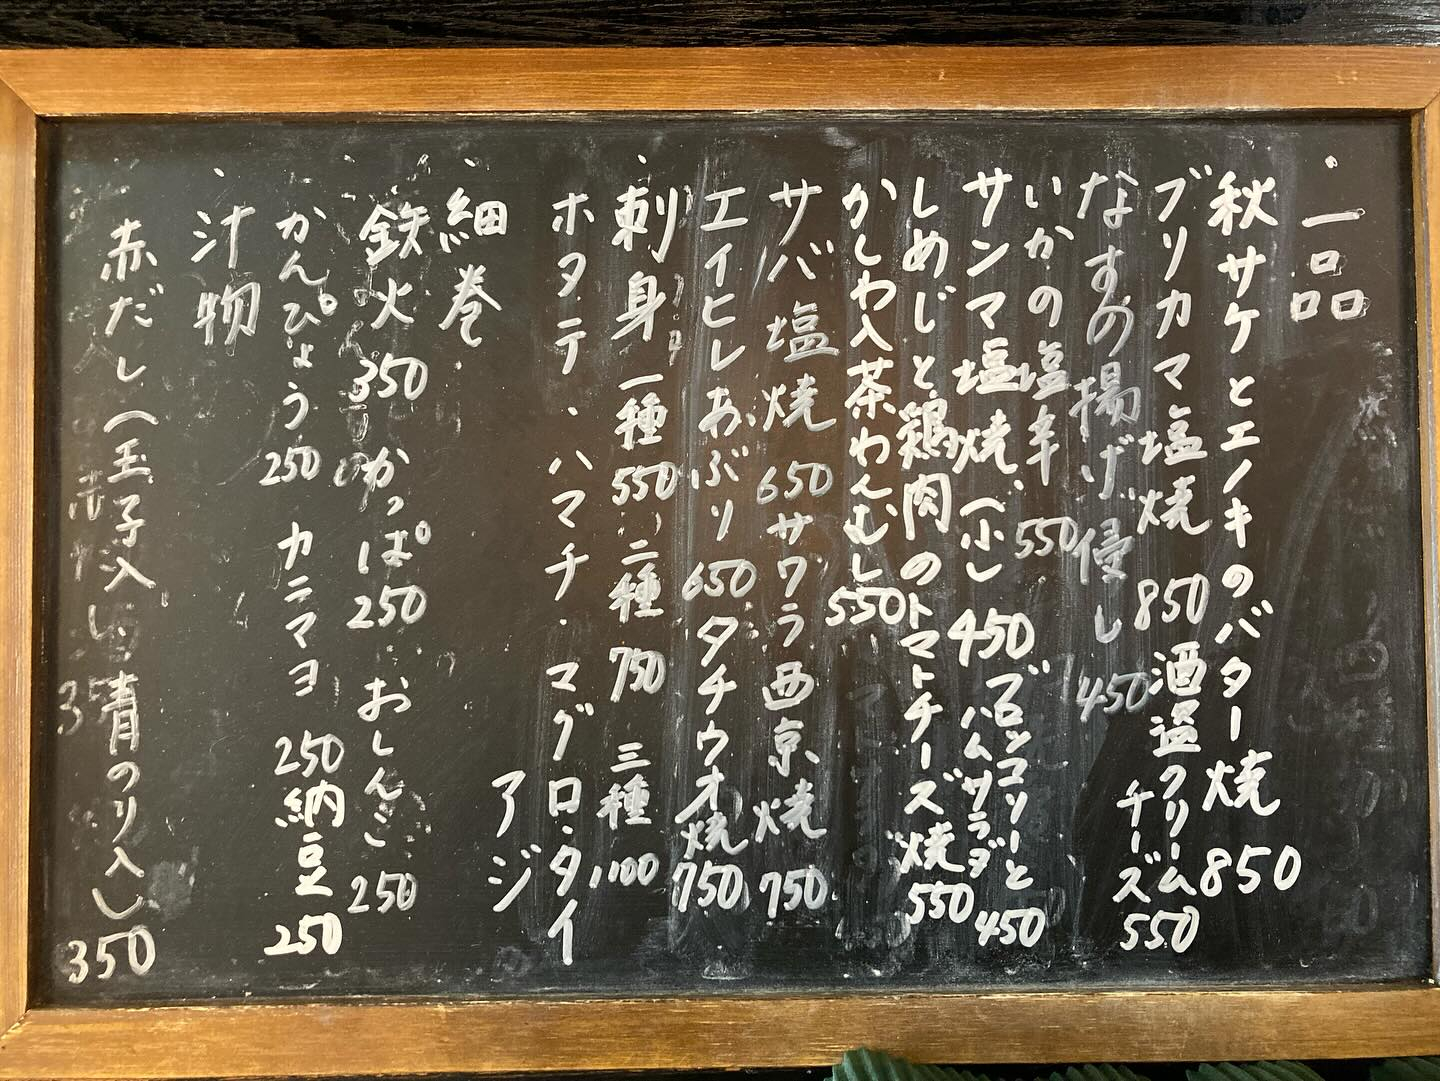 ・一品
秋サケとエノキのバター焼 850
ブリカマ塩焼 850 酒盗クリームチーズ 550
なすの揚げ浸し 450
いかの塩辛 550 ブロッコリーとハムサラダ 450
サンマ塩焼(小) 450
しめじと鶏肉のトマトチーズ焼 550
かしわ入茶わんむし 550
サバ塩焼 650 サワラ西京焼 750
エイヒレあぶり 650 タチウオ焼 750
・刺身 一種 550、二種 750 三種 1,100
ホタテ・ハマチ・マグロ・タイ
アジ
・細巻
鉄火 350 かっぱ 250 おしんこ 250
かんぴょう 250 カニマヨ 250 納豆 250
・汁物
赤だし(玉子入し 青のり入し 350